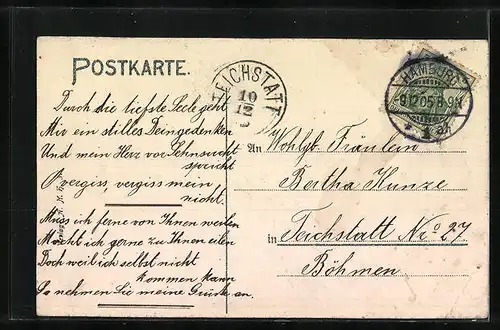 POSTKARTE.
Durch die tiefste Seele geht
Mir ein stilles Deingedenken
Und mein Herz vor Sehnsucht
spricht
vergiss, vergiss mein
nicht.
Muss ich ferne von Ihnen weilen
Möcht ich gerne zu Ihnen eilen
Doch weil ich selbst nicht
kommen kann
So nehmen Sie meine Grüße an.
REICHSTATT
10
12
HAMBURG
9.12.05.8-9N.
* 1
An Wohlgb. Fräulein
Bertha Kunze
in Reichstatt No 27
Böhmen